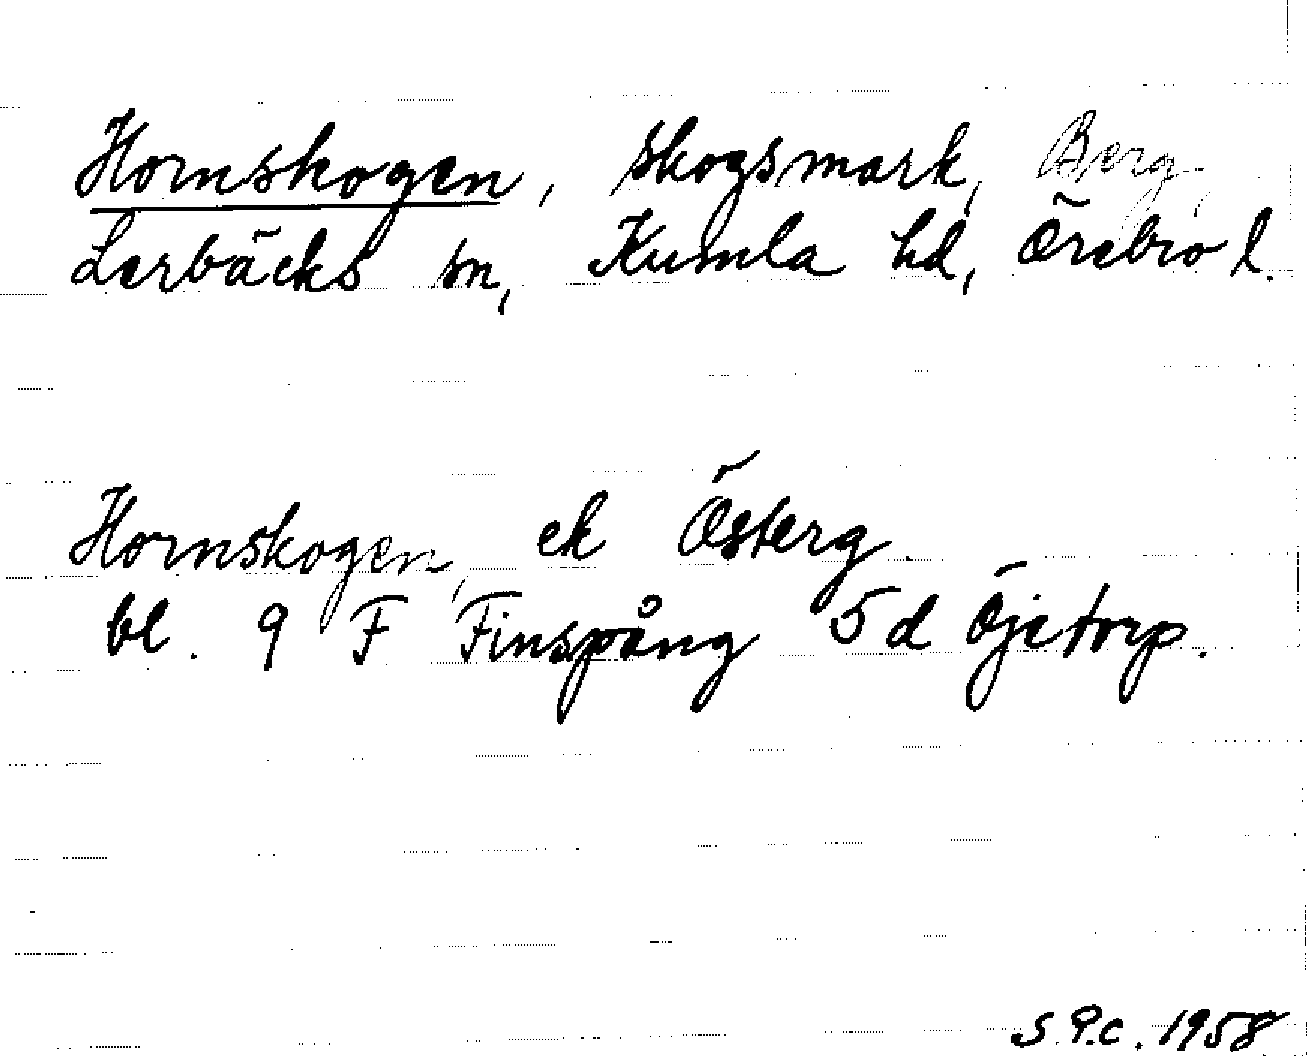 Hornskogen, skogsmark, Berg,
Lerbäcks sn, Kumla hd, Örebro l.
Hornskogen, ek Österg.
bl. 9 F Finspång 5d Öjetorp.
S.P.C. 1958